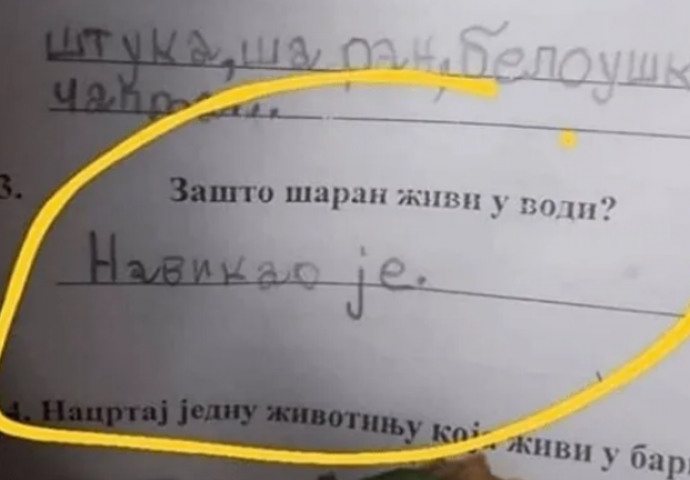 штука, шаран, белоушк
3. Зашто шаран живи у води?
Навикао је.
4. Нацртај једну животињу која живи у бари